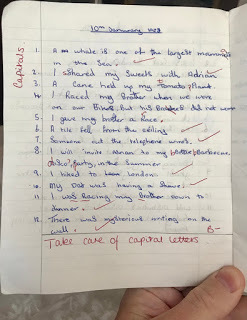 10th January 1988
Capitals
1. A whale is one of the largest mammals
in the Sea.
2. I shared my Sweets with Adrian
3. A Cane held up my Tomato Plant.
4. I Raced my Brother when we were
on our Bikes but his did not work
5. I gave my brother a
6. A tile fell from the ceiling
7. Someone cut the telephone wires.
8. I will invite Adrian to my Barbecue
disco, party, in the Summer
9. I hiked to London.
10. My Dad was having a Shave.
11. I was Racing my brother down to
dinner.
12. There was mysterious writing on the
wall.
B-
Take care of capital letters